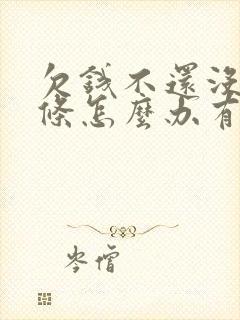 欠錢不還沒
條怎麼办有
岑僧